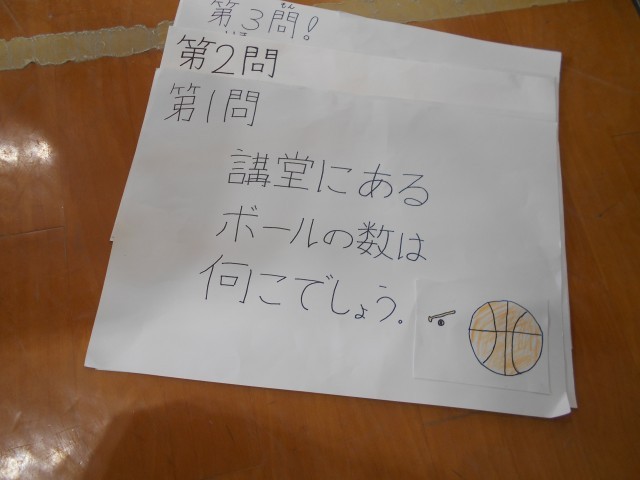 第3問!
第2問
第1問
講堂にある
ボールの数は
何こでしょう。